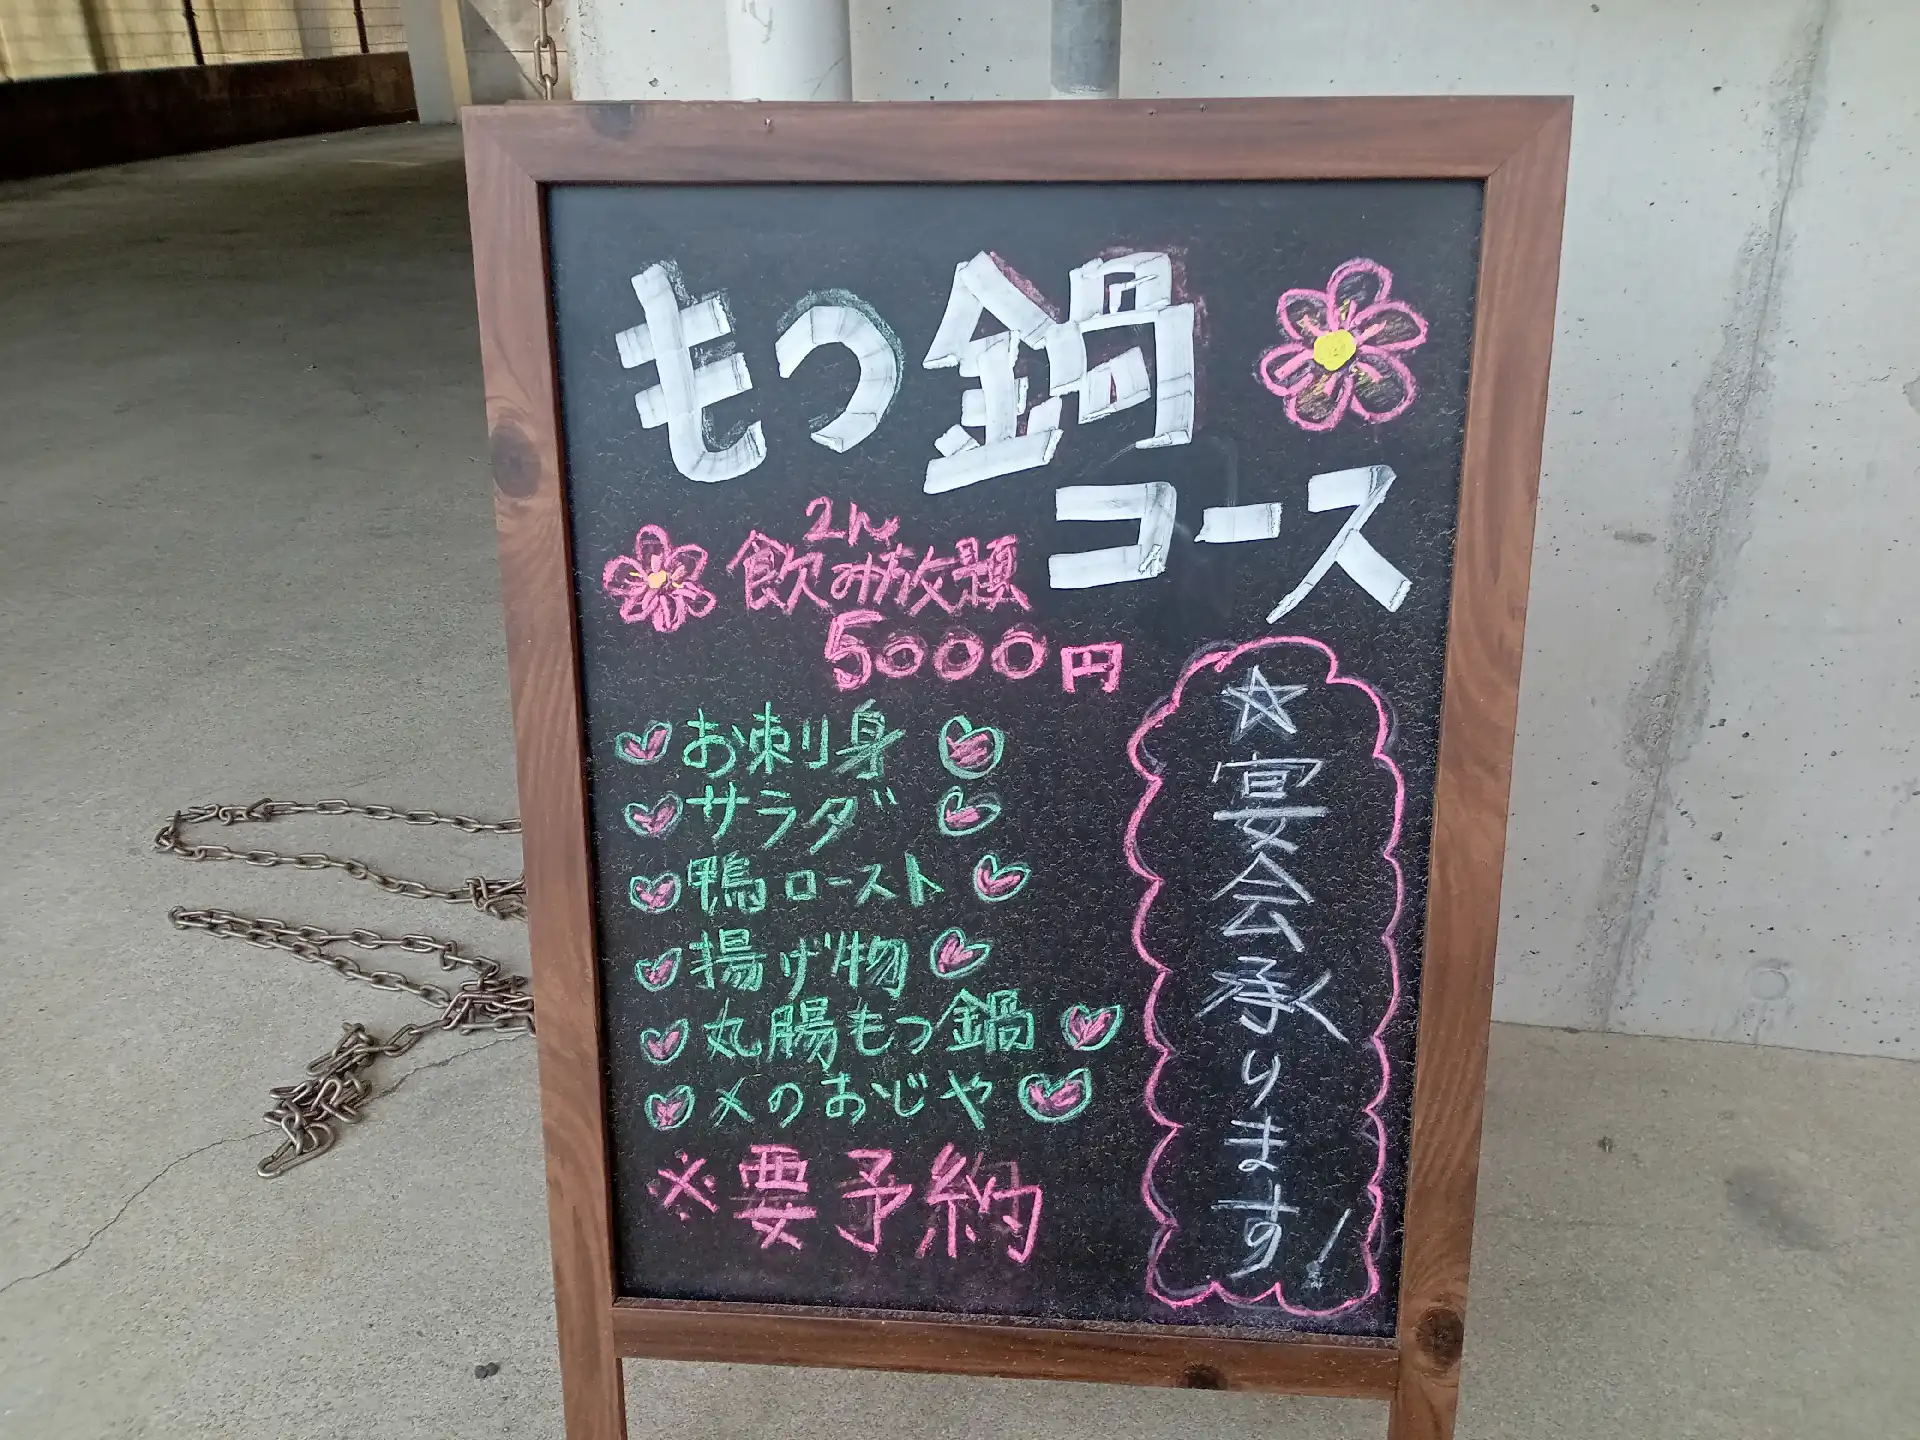 もつ鍋
コース
2h
飲み放題
5000円
お刺身
サラダ
鴨ロースト
揚げ物
丸腸もつ鍋
〆のおじや
※要予約
☆宴会承ります!